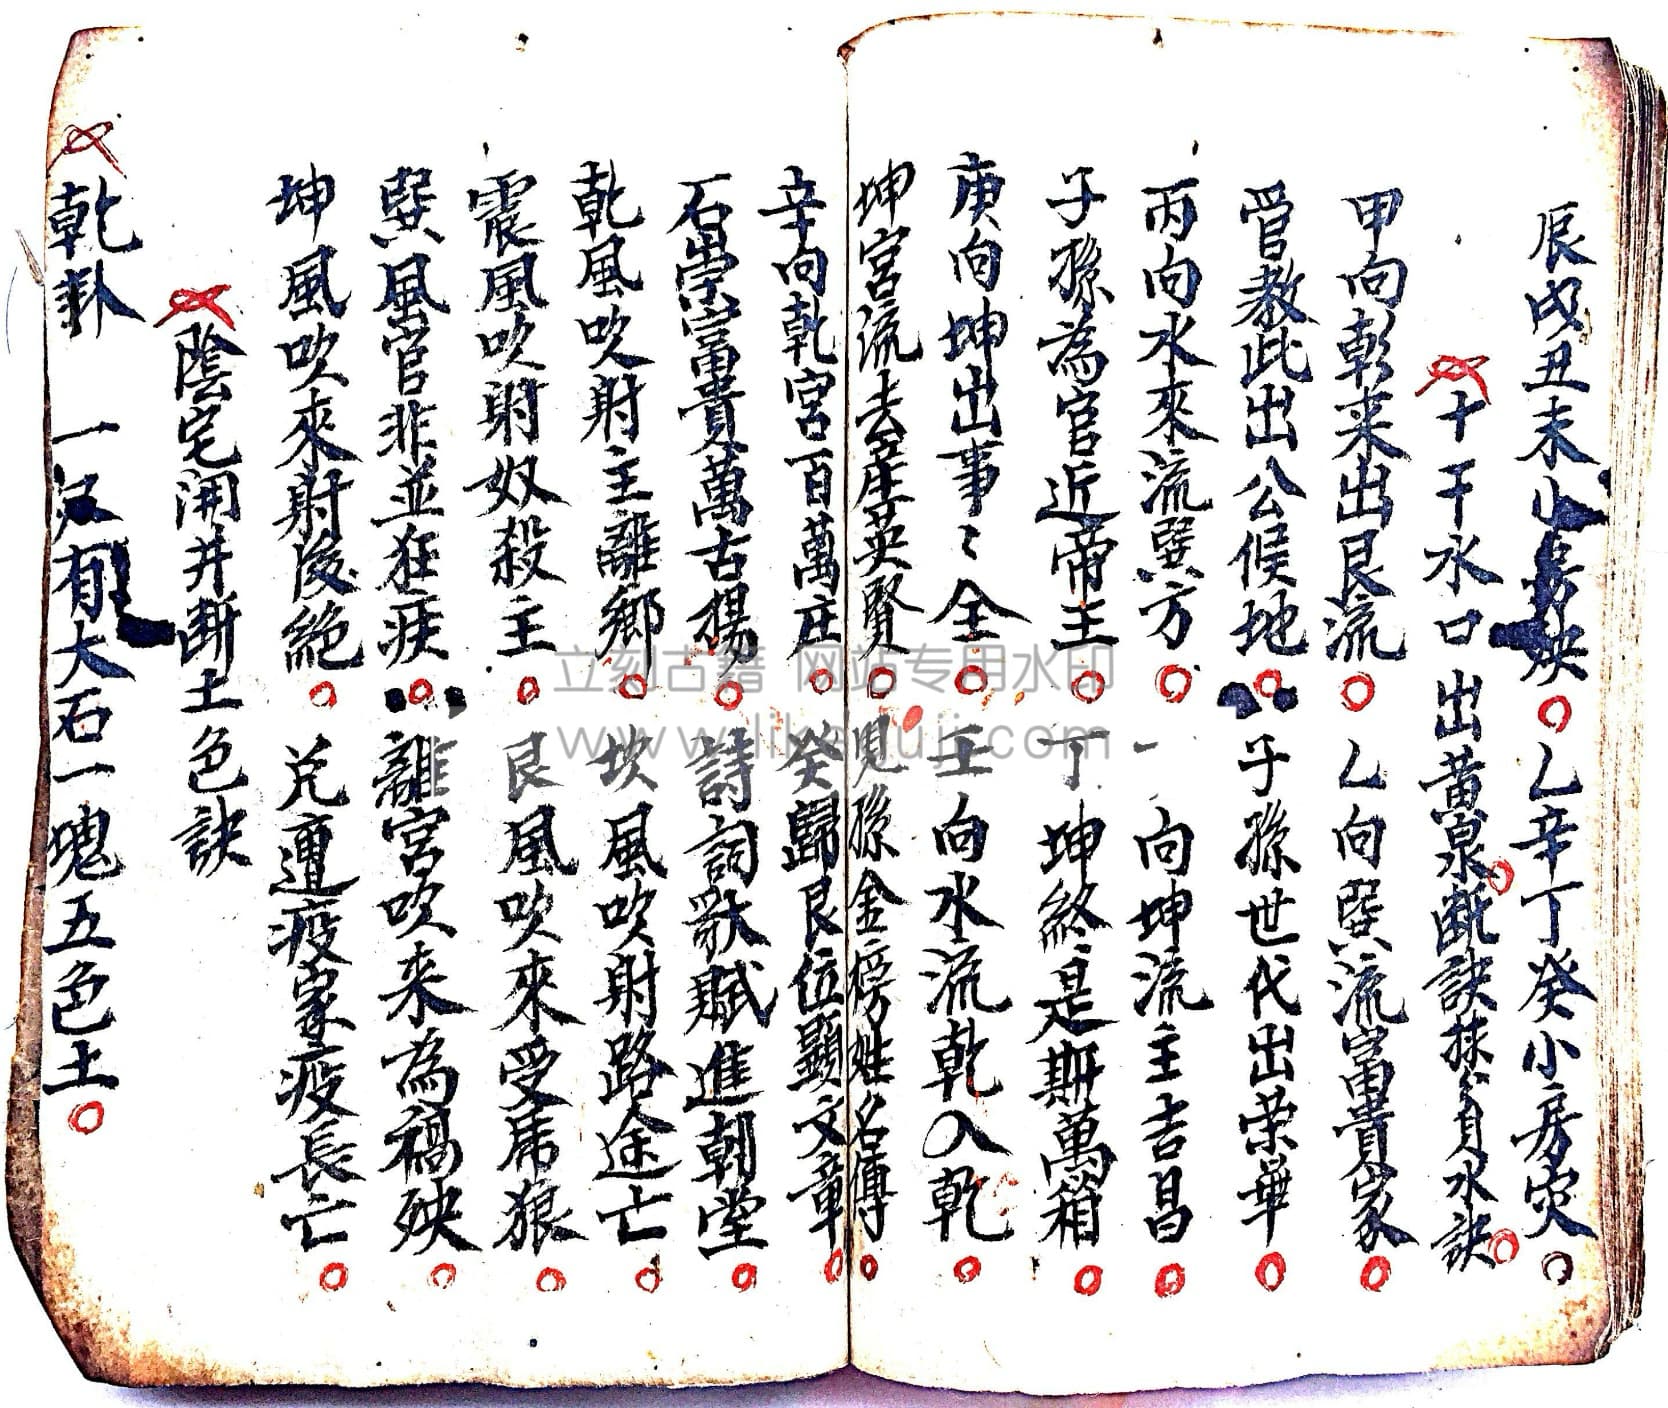 辰戌丑未小房殃○乙辛丁癸小房穴○
十干水口出黃泉斷訣 水訣
甲向彰来出艮流○乙向巽流富貴家○
官教此出公候地○子孫世代出荣華○
丙向水來流巽方○一向坤流主吉昌○
子孫為官近帝王○丁坤終是斯萬箱○
庚向坤出事〻全○壬向水流乾入乾○
坤宮流去產英賢○見孫金榜姓名傳○
辛向乾宮百萬庄○癸歸艮位顯文章○
石崇富貴萬古揚○詩詞歌賦進朝堂○
乾風吹射主離鄉○坎風吹射路途亡○
震風吹射奴殺主○艮風吹來受席狼○
巽風官非並狂疾○離宮吹来為禍殃○
坤風吹來射後絕○兌遭疫家疫長亡○
陰宅開井斷土色訣
乾卦 一尺有大石一塊五色土○
立刻古籍 网站专用水印
www.likeguji.com